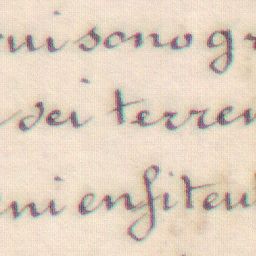 ui sono gr
dei terren
ni enfiteu